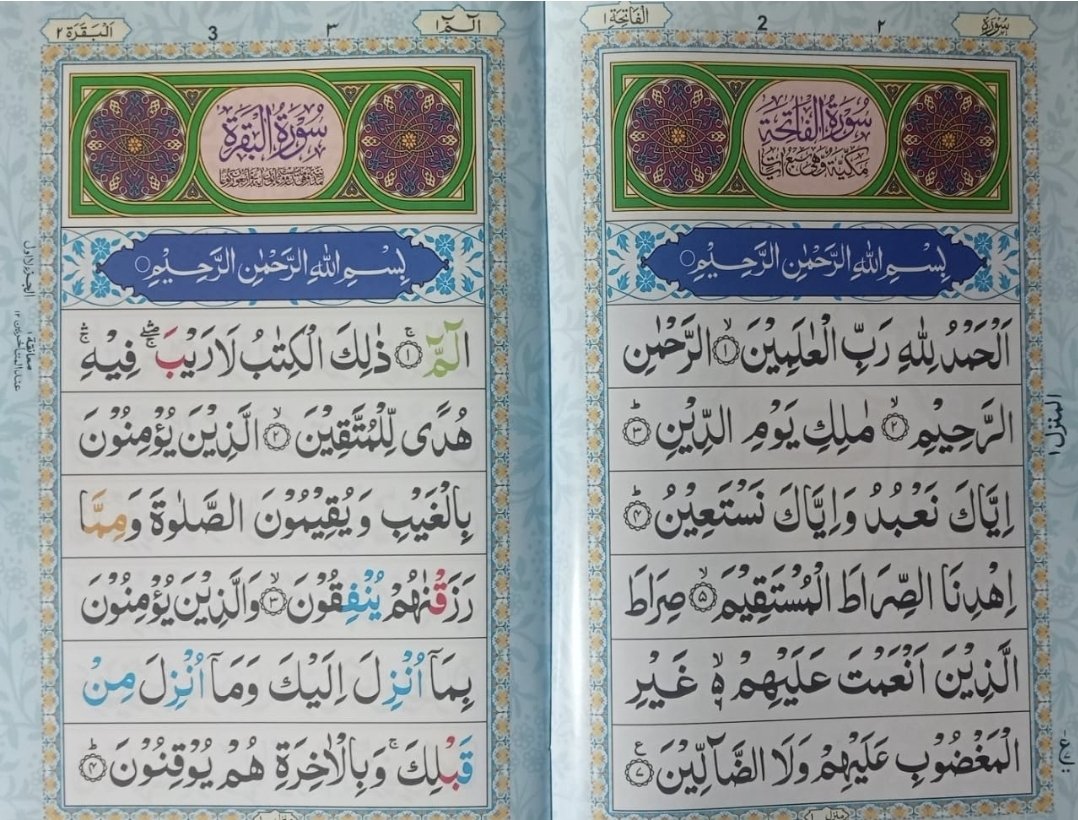 سُوْرَۃ
٢
2
الفَاتِحَة ١
سُوْرَةُ الْفَاتِحَةِ
مَكِّيَّةٌ وَّهِيَ سَبْعُ اٰيَاتٍ
بِسْمِ اللهِ الرَّحْمٰنِ الرَّحِيْمِ ○
اَلْحَمْدُ لِلّٰهِ رَبِّ الْعٰلَمِيْنَ ۙ﴿١﴾ الرَّحْمٰنِ
الرَّحِيْمِ ۙ﴿٢﴾ مٰلِكِ يَوْمِ الدِّيْنِ ؕ﴿٣﴾
اِيَّاكَ نَعْبُدُ وَاِيَّاكَ نَسْتَعِيْنُ ؕ﴿۴﴾
اِهْدِنَا الصِّرَاطَ الْمُسْتَقِيْمَ ۙ﴿۵﴾ صِرَاطَ
الَّذِيْنَ اَنْعَمْتَ عَلَيْهِمْ ۙ۬ ۹ غَيْرِ
الْمَغْضُوْبِ عَلَيْهِمْ وَلَا الضَّآلِّيْنَ ﴿٧﴾ ع
المنزل ١
الٓمّٓ ١
٣
3
الْبَقَرَة ٢
سُوْرَةُ الْبَقَرَةِ
بِسْمِ اللهِ الرَّحْمٰنِ الرَّحِيْمِ ○
الٓمّٓ ۚ﴿١﴾ ذٰلِكَ الْكِتٰبُ لَا رَيْبَ ۛۖۚ فِيْهِ ۛۚ
هُدًى لِّلْمُتَّقِيْنَ ۙ﴿٢﴾ الَّذِيْنَ يُؤْمِنُوْنَ
بِالْغَيْبِ وَيُقِيْمُوْنَ الصَّلٰوةَ وَمِمَّا
رَزَقْنٰهُمْ يُنْفِقُوْنَ ۙ﴿٣﴾ وَالَّذِيْنَ يُؤْمِنُوْنَ
بِمَآ اُنْزِلَ اِلَيْكَ وَمَآ اُنْزِلَ مِنْ
قَبْلِكَ ۚ وَبِالْاٰخِرَةِ هُمْ يُوْقِنُوْنَ ؕ﴿۴﴾
الجزء الاول